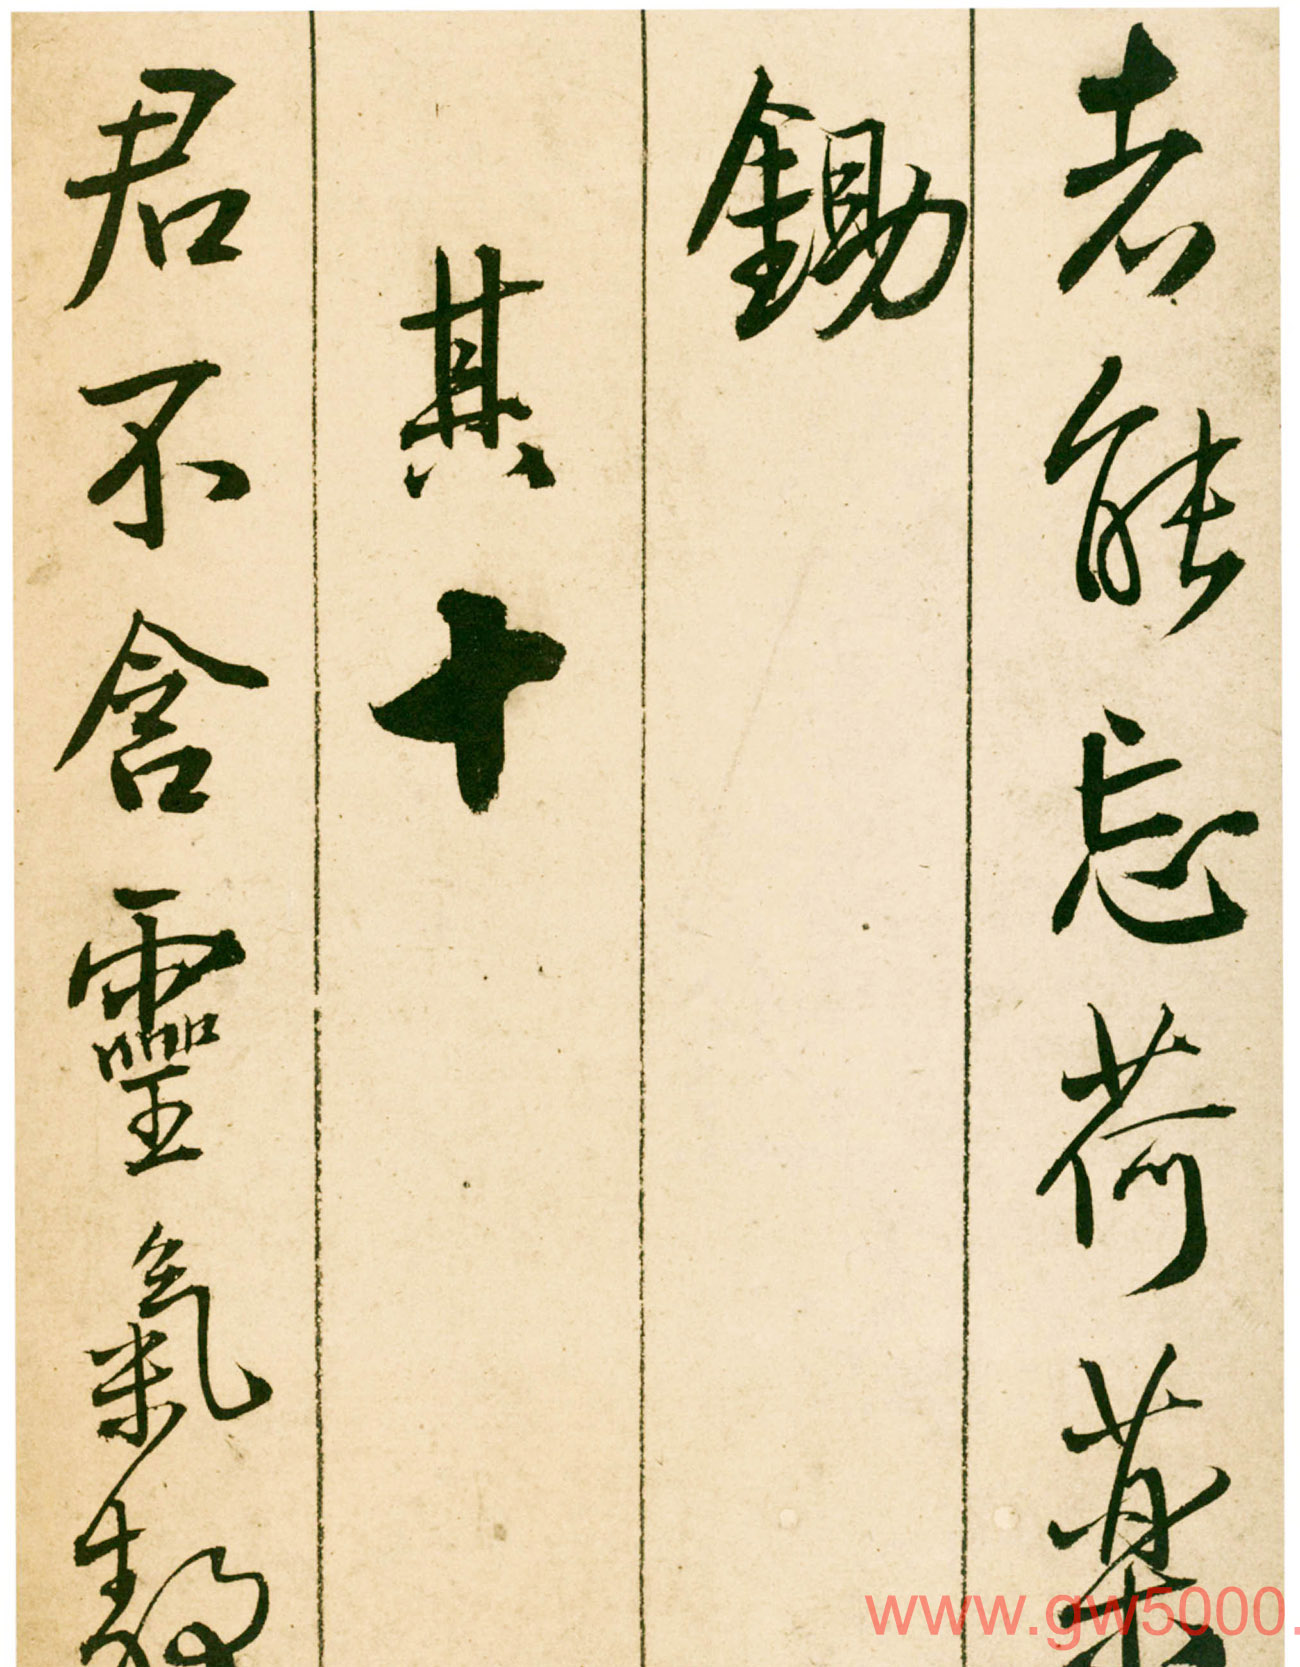 老能忘荷藥
鋤
其十
君不含靈氣
www.gw5000.